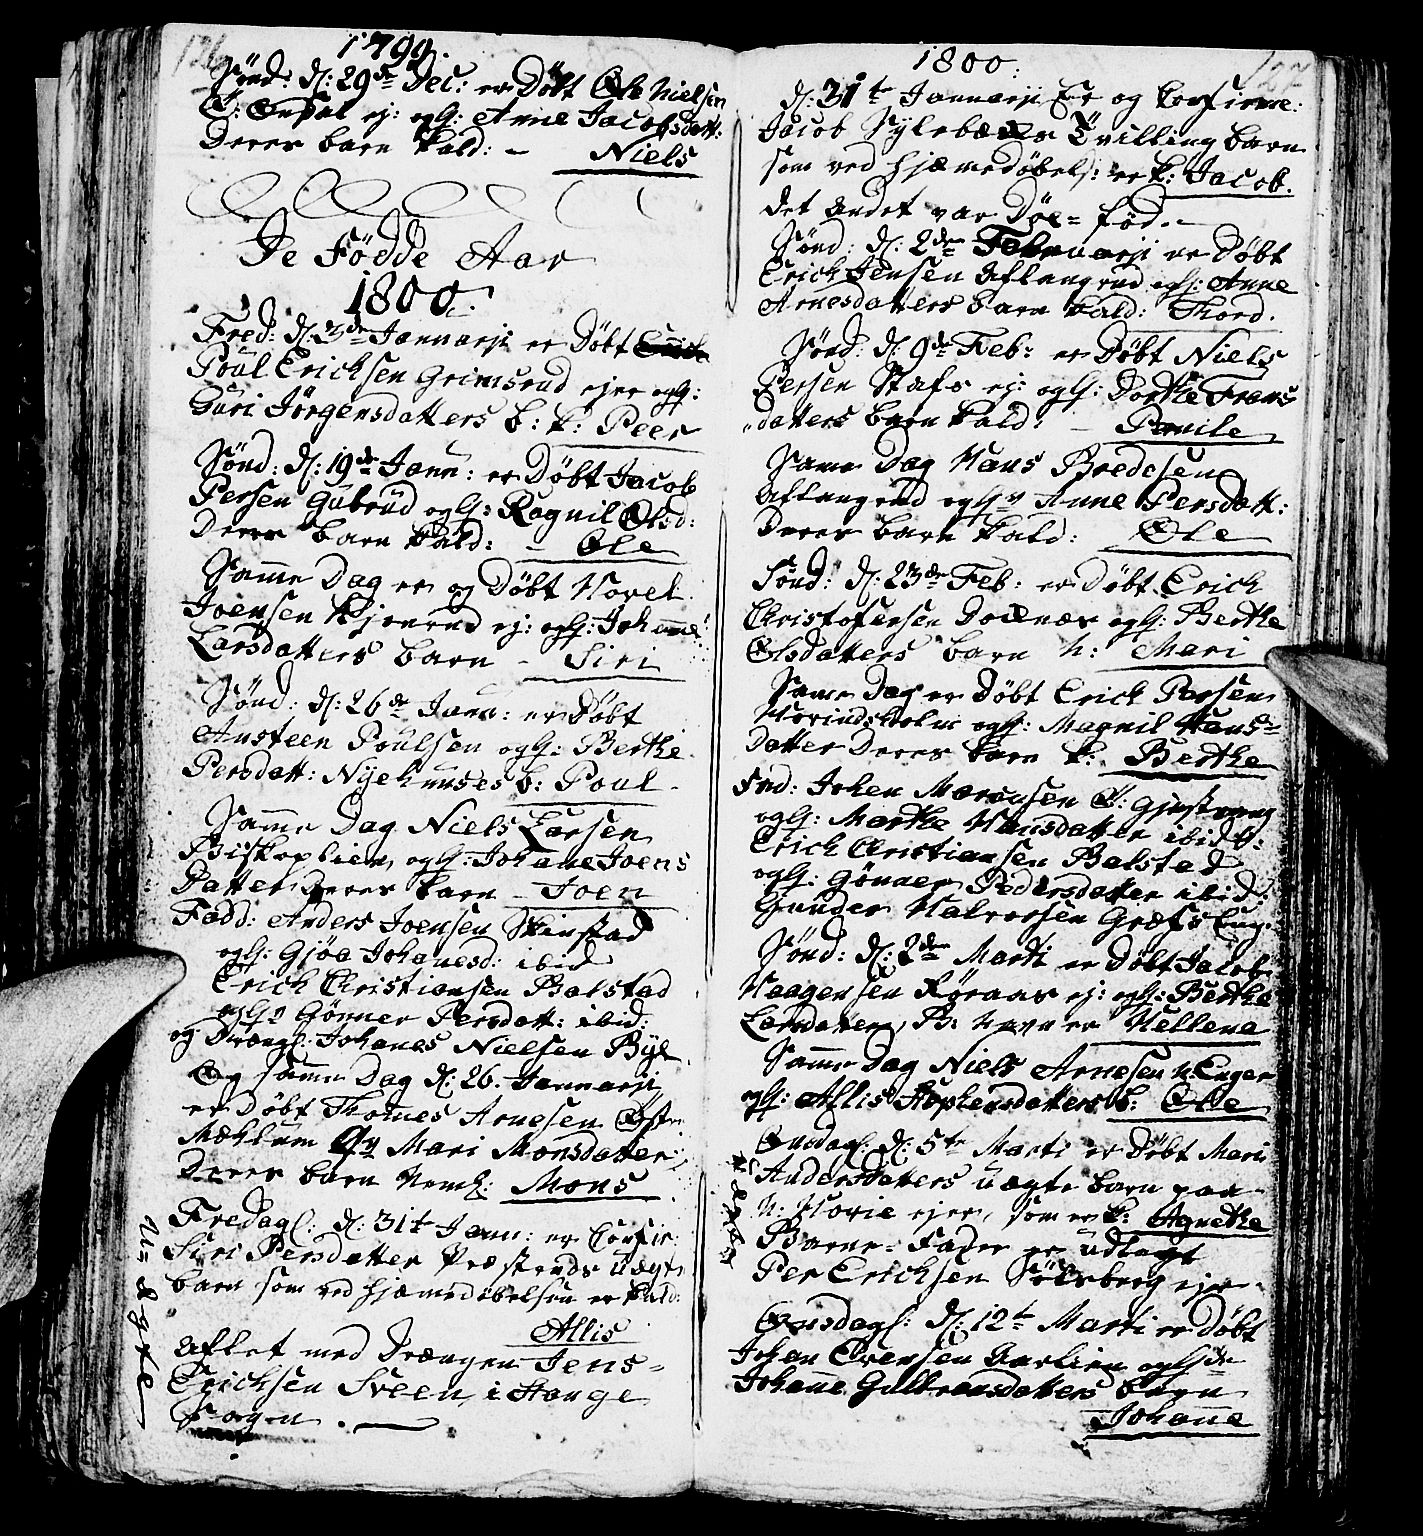 126
1799.
Sönd: d: 29de Dec: er Döbt Ole Nielsen
ej: oglh: Anne Jacobsdatt:
Deres barn kald: – Niels
De Födde Aar
1800.
Fred: d: 3de Januarji er Döbt
Poul Ericksen Grimsrud ejer oglh:
Guri Jörgensdatters b: k: Peer
Sönd: d: 19de Janu: er Döbt Jacob
Persen Gubrud oglh: Ragnil Olsd:
Deres barn kald: – Ole
Samme Dag er og Döbt Hovel
Joensen ej: oglh: Johanne
Larsdatters barn – Siri
Sönd: d: 26de Janu: er Döbt
Austeen Poulsen oglh: Berthe
Persdatt: Nyehuuses b: Poul
Samme Dag Niels Larsen
Biskoplien, oglh: Johane Joens
Datter Deres barn – Joen
Fadd: Anders Joensen Skinstad
oglh: Gjöa Johanesd: ibid
Erick Christiansen Balstad
oglh: Gönner Persdatt: ibid:
og Drængl: Johanes Nielsen Bye
Og samme Dag d: 26. Januarji
er Döbt Thomes Arnesen Östre
Mæhlum Qv Mari Monsdatter
Deres barn Neml: Mons
Fredagl: d: 31te Janu: er Confir:
Siri Persdatter Præsteruds uægte
barn som ved hjemedöbelsen er kald:
Allis
aflet med Drængen Jens
Ericksen Sveen i Stange
Sogn.
U=ægte
1800.
127
d: 31te Januarji Er og konfirme:
Jacob Sylebæks Tvilling barn
som ved hjemedöbels: er k: Jacob.
det andet var Död=föd.–
Sönd: d: 2den Februarji er Döbt
Erick Jensen Aflangrud oglh: Anne
Arnesdatters barn kald: Thord.
Sönd: d: 9de Feb: er Döbt Niels
Persen Stafs ej: oglh: Dorthe Frans
datters barn kald: – Pernile
Same Dag Hans Bredesen
Aflangrud oglhv Anne Persdatt:
Deres barn kald: Ole
Sönd: d: 23de Feb: er Döbt Erick
Christofersen Dælnæs oglh: Berthe
Olsdatters barn N: Mari
Same Dag er Döbt Erick Persen
oglh: Magnil Hans=
Datter Deres barn k: Berthe
Fad: Johan
oglh: Marthe Hansdatter ibid:
Erick Christiansen Balstad
oglh: Gönner Pedersdatter ibid:
Gunder Halvorsen Græfs Eng.
Sönd: d: 2den Marti er Döbt Jacob
Haagensen Röraas ej: oglh: Berthe
Larsdatter, B: Navn er Hellene
Samme Dag Niels Arnesen N: Enger
oglh: Allis Stephensdatters b: Ole
Onsdagl: d: 5te Marti er Döbt Mari
Andersdatters uægte barn paa
N: Horie ejer, som er k: Agnethe
Barne=Fader er udlagt
Per Ericksen Sölsberg ejer
uægte
Onsdagl: d: 12te Marti er Döbt
Johan Evensen Aarlien oglh
Johanne Gulbransdatters barn
Johanne